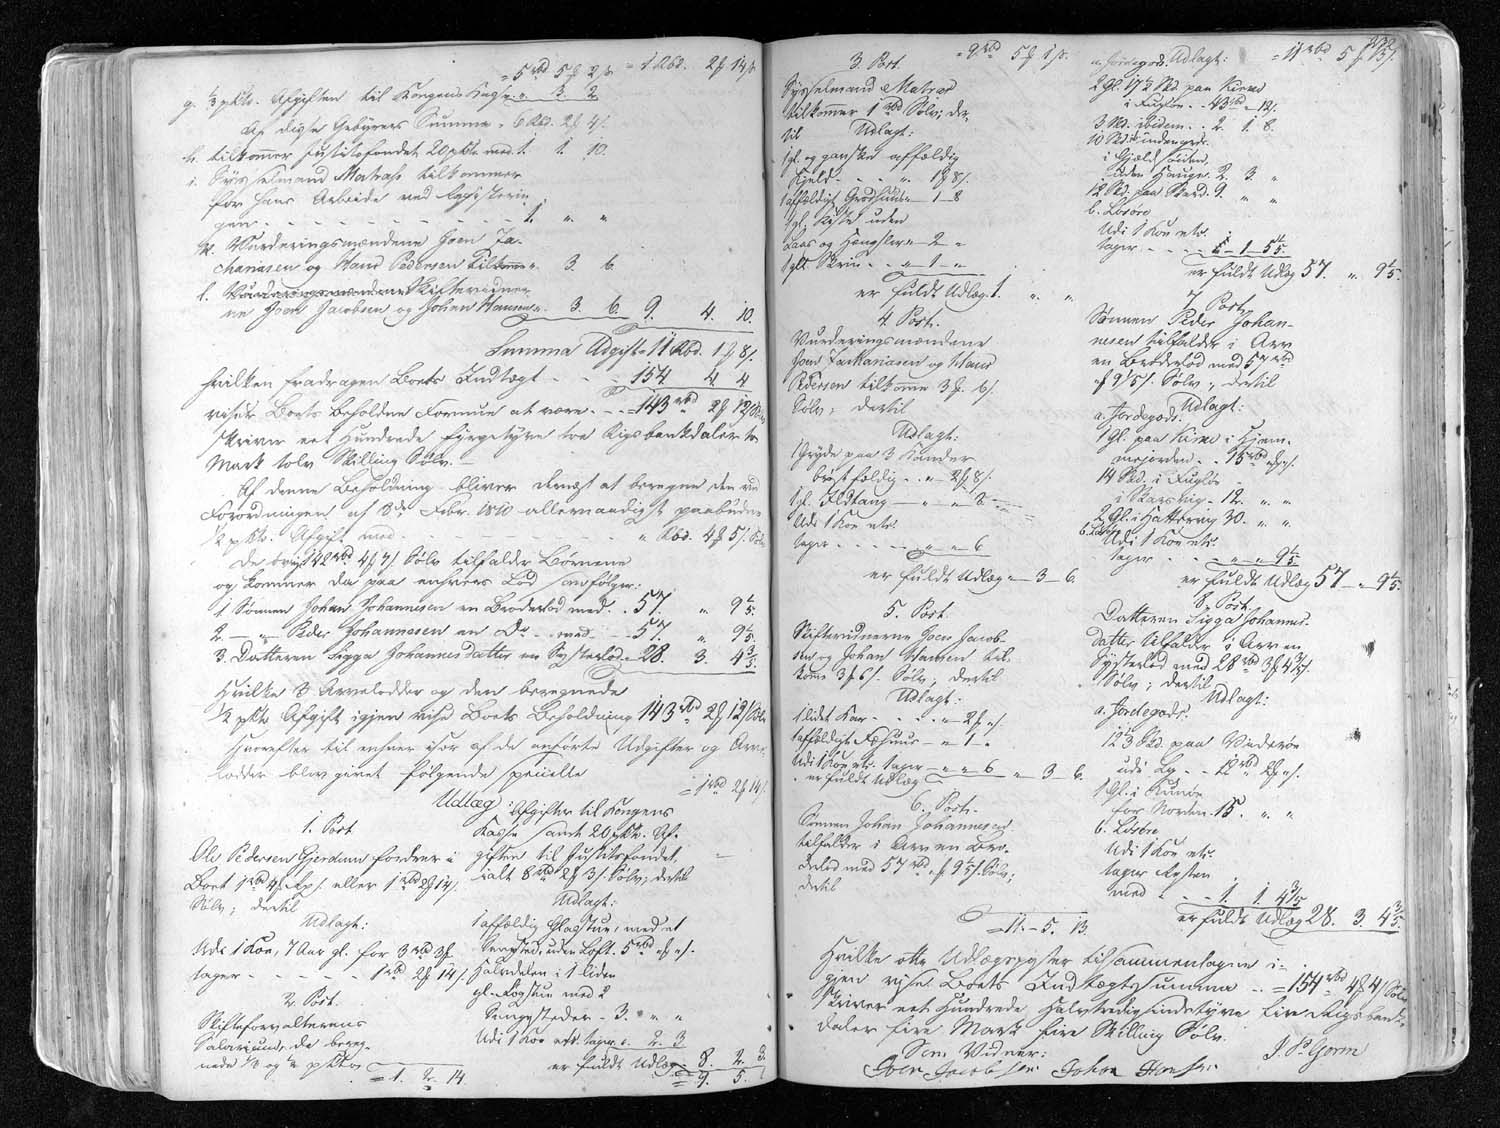 = 5 rbd 5 ß 2 s. = 1 Rbd. 2 ß 14 s.
g. 1/3 pCto. Afgiften til Kongens Kasse " 3. 2
Af disse Gebyrers Summa = 6 Rbd. 2 ß 4 s.
h. tilkommer Justitsfondet 20 pCto. med 1. 1. 10.
i. Sysselmand Matras tilkommer
for hans Arbeide ved Registerin
gen - - - - - - - 1. " "
k. Vurderingsmændene Joen Za-
chariasen og Hans Pedersen tilkomme " 3. 6.
l. Skiftevidner
ne Joen Jacobsen og Johan Hansen " 3. 6. 9. 4. 10.
Summa Udgift = 11 Rbd. 1 ß 8 s.
hvilken fradragen Boets Indtægt - - 154 4. 4
viser Boets beholdne Formue at være - - = 143 rbd 2 ß 12 s. Sølv
skriver eet Hundrede fyrgetyve tre Rigsbankdaler to
Mark tolv Skilling Sølv. -
Af denne Beholdning bliver dernæst at beregne den ved
Forordningen af 8de Febr. 1810 allernaadigst paabudne
1/2 pCto. Afgift med - - - - - " Rbd. 4 ß 5 s. Sølv
De øvrige 142 rbd 4 ß 7 s. Sølv tilfalder Børnene
og kommer da paa enhvers Lod som følger:
1. Sønnen Johan Johannesen en Broderlod med - 57. " 9 1/5
2. - " - Peder Johannesen en Do - med - - 57. " 9 1/5
3. Datteren Sigga Johannesdatter en Systerlod = 28. 3. 4 3/5
Hvilke 3 Arvelodder og den beregnede
1/2 pCto Afgift igjen viser Boets Beholdning 143 rbd 2 ß 12 s. Sølv
Hvorefter til enhver især af de anførte Udgifter og Arve-
lodder blev givet følgende specielle
Udlæg: = 1 rbd 2 ß 14 s.
1. Post
Ole Pedersen Gjerdum fordrer i
Boet eller 1 rbd 2 ß 14 s.
Sølv; dertil
Udlagt:
Udi 1 Koe, 7 Aar gl. for 3 rbd 3 ß
tager - - - - 1 rbd 2 ß 14 s.
2. Post.
Skifteforvalterens
Salarium, de bereg-
nede 1/3 og 1/4 pCtos
= 1. 2. 14
Afgifter til Kongens
Kasse samt 20 pCto. Af-
giften til Justitsfondet,
ialt 8 rbd 2 ß 3 s. Sølv; dertil
Udlagt:
1 affældig Glasstue, med et
Sengested, uden Loft - 5 rbd " ß " s.
Halvdelen i 1 liden
gl. Rogstue med 2
Sengesteder - 3. " "
Udi 1 Koe tager - 2. 3
er fuldt Udlæg - 8. 2. 3.
= 9. 5.
3. Post. = 9 rbd 5 ß 1 s.
Sysselmand Matras
tilkommer 1 rbd Sølv; der-
til Udlagt:
1 gl. og ganske affældig
Kjeld - - " 1 ß 8 s.
1 affældigt Grødhuus - 1 - 8
1 gl. Kiste uden
Laas og Hængsler " - 2 - "
1 gl. Skrin - - " - 1 - "
er fuldt Udlæg. 1. " "
4. Post.
Vurderingsmændene
Joen Zachariasen og Hans
Pedersen tilkomme 3 ß. 6 s.
Sølv; dertil
Udlagt:
1 Gryde paa 3 Kander
brøstfældig - - " 2 ß 8 s.
1 gl. Ildtang - " - " 8. -
Udi 1 Koe etc.
tager - - - " " 6
er fuldt Udlæg " - 3 - 6.
5. Post.
Skiftevidnerne Joen Jacob-
sen og Johan Hansen til-
komme 3 ß 6 s. Sølv; dertil
Udlagt:
1 lidet Kar - - - " - 2 ß " s.
1 affældigt Fæhuus - " 1 "
Udi 1 Koe etc. tager - " " 6
er fuldt Udlæg " - 3 - 6.
6. Post.
Sønnen Johan Johannesen
tilfalder i Arv en Bro-
derlod med 57 rbd " ß 9 1/5 s. Sølv;
dertil
= 11. - 5. 13.
a. Jordegods. Udlagt: = 11 rbd 5 ß 13 s.
i Fugløe - - 43 rbd " - 12 s.
3 Skd. ibidem - - 2. 1. 8.
i Gjæld
uden Hauge. 2. 3. "
12 Skd. paa Skard. 9. " "
b. Løsøre
Udi 1 Koe etc.
tager - - - " - 1 - 5 1/5
er fuldt Udlæg 57. " 9 1/5.
7. Post.
Sønnen Peder Johan-
nesen tilfalder i Arv
en Broderlod med 57 rbd
" ß 9 1/5 s. Sølv; dertil
Udlagt:
a. Jordegods.
1 Gl. paa Kirke i Hjem-
mejorden - - 15 rbd " ß " s.
14 Skd. i Fugløe
i Skarsvig - 12. " "
2 Gl. i Hattervig 30. " "
b. Løsøre Udi 1 Koe etc.
tager - - " " 9 1/5
er fuldt Udlæg 57 - " 9 1/5.
8. Post.
Datteren Sigga Johannes-
datter tilfalder i Arv en
Systerlod med 28 rbd 3 ß 4 3/5 s.
Sølv; dertil
Udlagt:
a. Jordegods.
12 3/5 Skd. paa Viderøe
udi - - 12 rbd 2 ß " s.
1 Gl. i Kunøe
for Norden 15. " "
b. Løsøre
Udi 1 Koe etc.
tager Resten
med - - 1. 1. 4 3/5
er fuldt Udlæg 28. 3. 4 3/5.
Hvilke otte Udlægsposter tilsammentagne i-
gjen viser Boets Indtægtssumma - = 154 rbd 4 ß 4 s. Sølv
skriver eet Hundrede halvtredsindstyve fire Rigsbank-
daler fire Mark fire Skilling Sølv.
Som Vidner:
Joen Jacobsen Johan Hansen